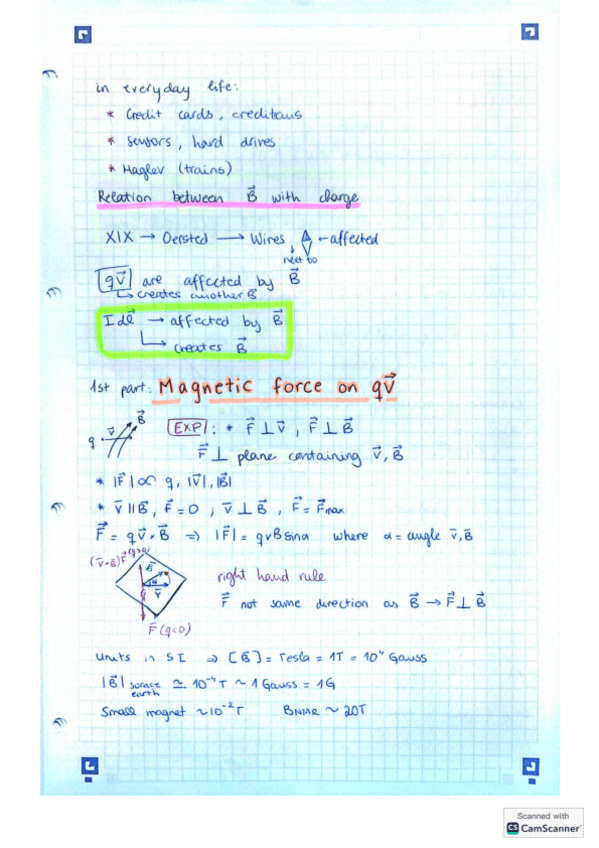 in everyday life:
* Credit cards, creditaus
* sensors, hard drives
* Maglev (trains)
Relation between B⃗ with charge
XIX → Oersted → Wires ← affected
next to
qv⃗ are affected by B⃗
↳ creates another B⃗
I dl⃗ → affected by B⃗
↳ creates B⃗
1st part: Magnetic force on qv⃗
q v⃗ B⃗
EXP: * F⃗ ⊥ v⃗, F⃗ ⊥ B⃗
F⃗ ⊥ plane containing v⃗, B⃗
* |F⃗| ∝ q, |v⃗|, |B⃗|
* v⃗ || B⃗, F⃗ = 0 ; v⃗ ⊥ B⃗, F⃗ = F⃗max
F⃗ = qv⃗ × B⃗ ⇒ |F⃗| = qvB sinα where α = angle v⃗, B⃗
(v⃗×B⃗) F⃗ (q>0)
B⃗
α
v⃗
q
right hand rule
F⃗ not same direction as B⃗ → F⃗ ⊥ B⃗
F⃗ (q<0)
Units in SI ⇒ [B⃗] = Tesla = 1T = 10⁴ Gauss
|B⃗| surface earth ≃ 10⁻⁴ T ~ 1 Gauss = 1G
Small magnet ~ 10⁻² T BNMR ~ 20T
Scanned with
CS CamScanner